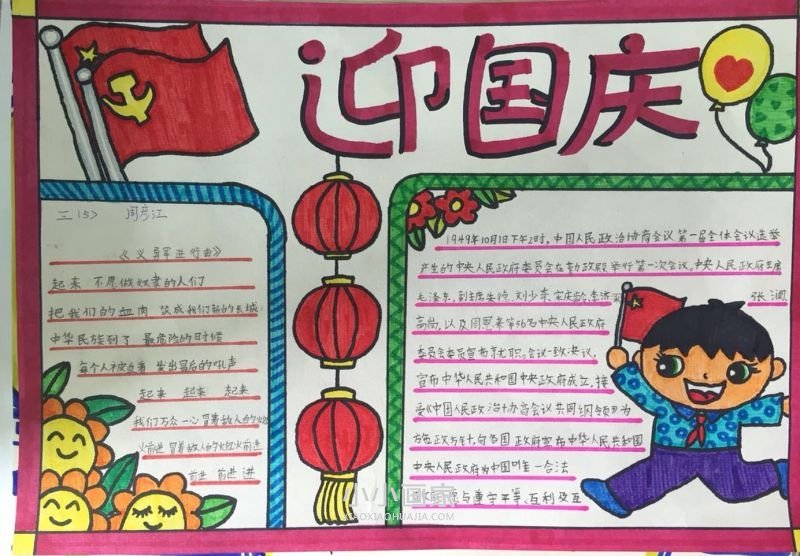 迎国庆
三(5) 周彦江
《义勇军进行曲》
起来 不愿做奴隶的人们
把我们的血肉 筑成我们新的长城
中华民族到了 最危险的时候
每个人被迫着 发出最后的吼声
起来 起来 起来
我们万众一心 冒着敌人的炮
火前进 冒着敌人的炮火前进
前进 前进 进
1949年10月1日下午2时,中国人民政治协商会议第一届全体会议选举
产生的中央人民政府委员会在勤政殿举行第一次会议,中央人民政府主席
毛泽东,副主席朱德、刘少奇、宋庆龄、李济深 张澜
高岗,以及周恩来等56名中央人民政府
委员会委员宣布就职。会议一致决议,
宣布中华人民共和国中央政府成立,接
受《中国人民政治协商会议共同纲领》为
施政方针,向各国政府宣布中华人民共和国
中央人民政府为中国唯一合法
遵守平等、互利及互
小小画家
XIAOXIAOHUAJIA.COM